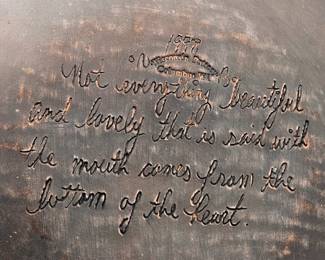 1998
Not everything beautiful
and lovely that is said with
the mouth comes from the
bottom of the heart.